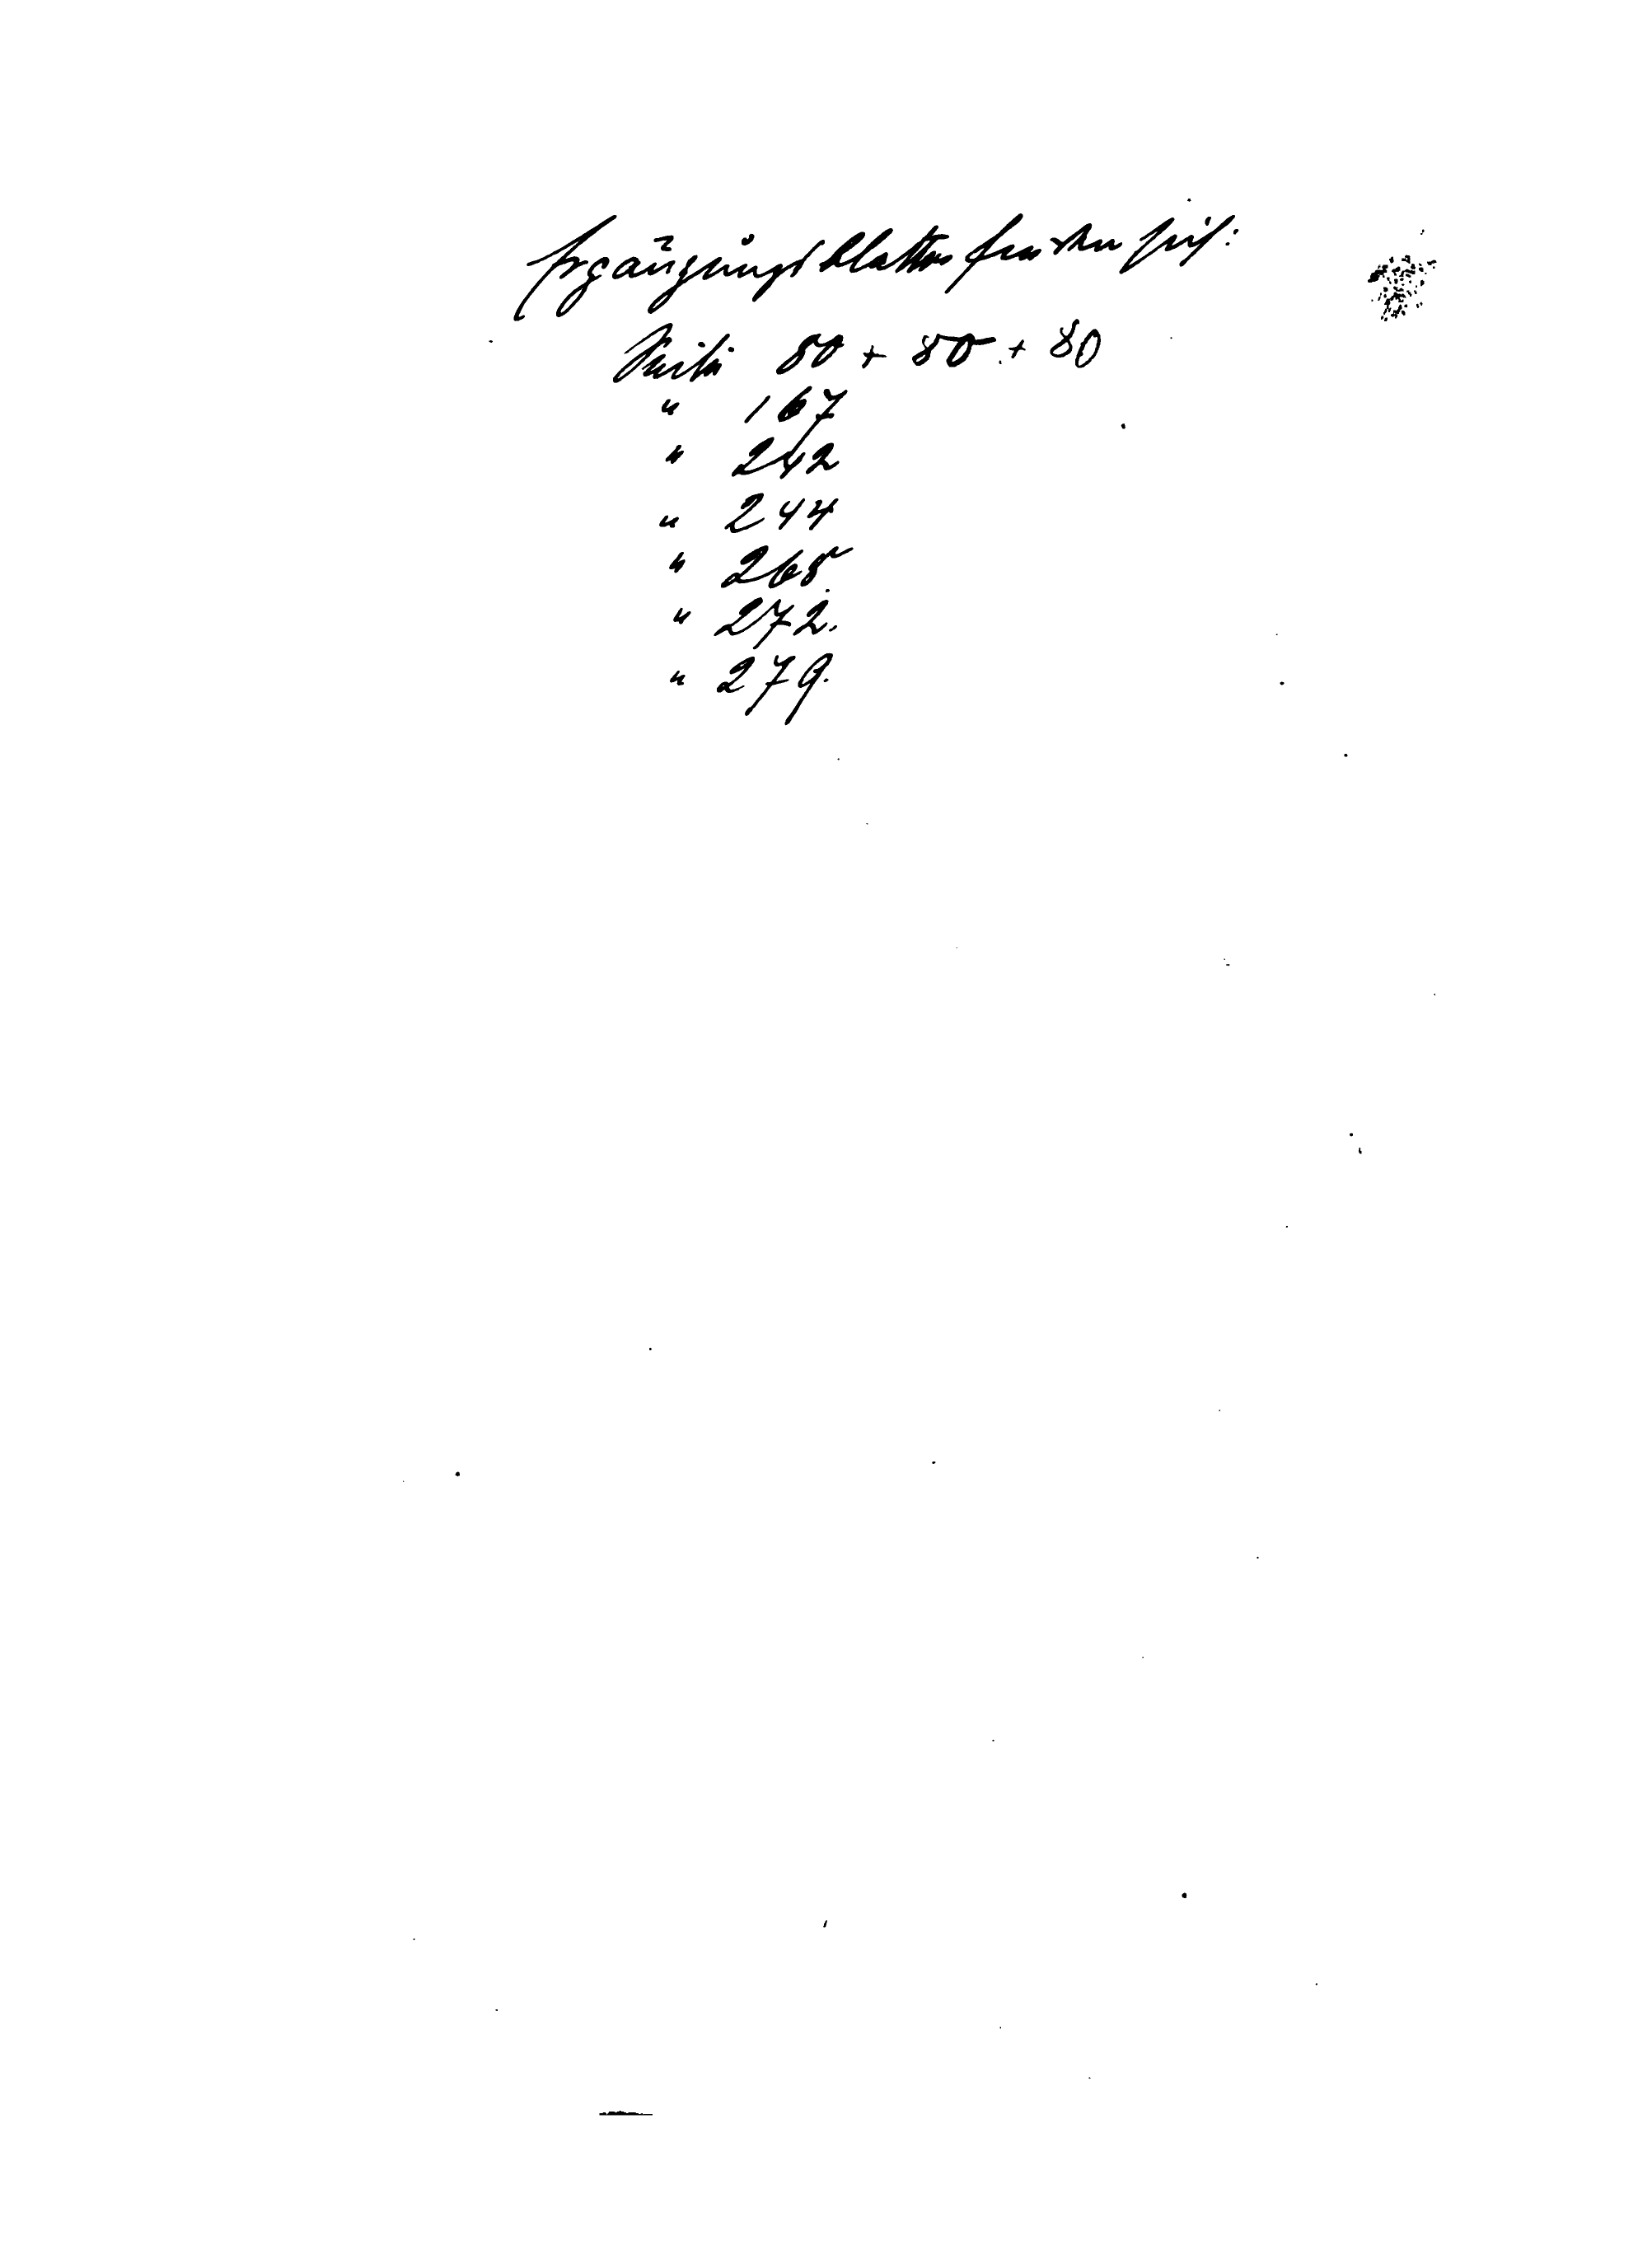 Ergänzungsblätter finden sich:
Seite 80 + 80 + 80
" 167
" 242
" 244
" 268
" 272.
" 279.